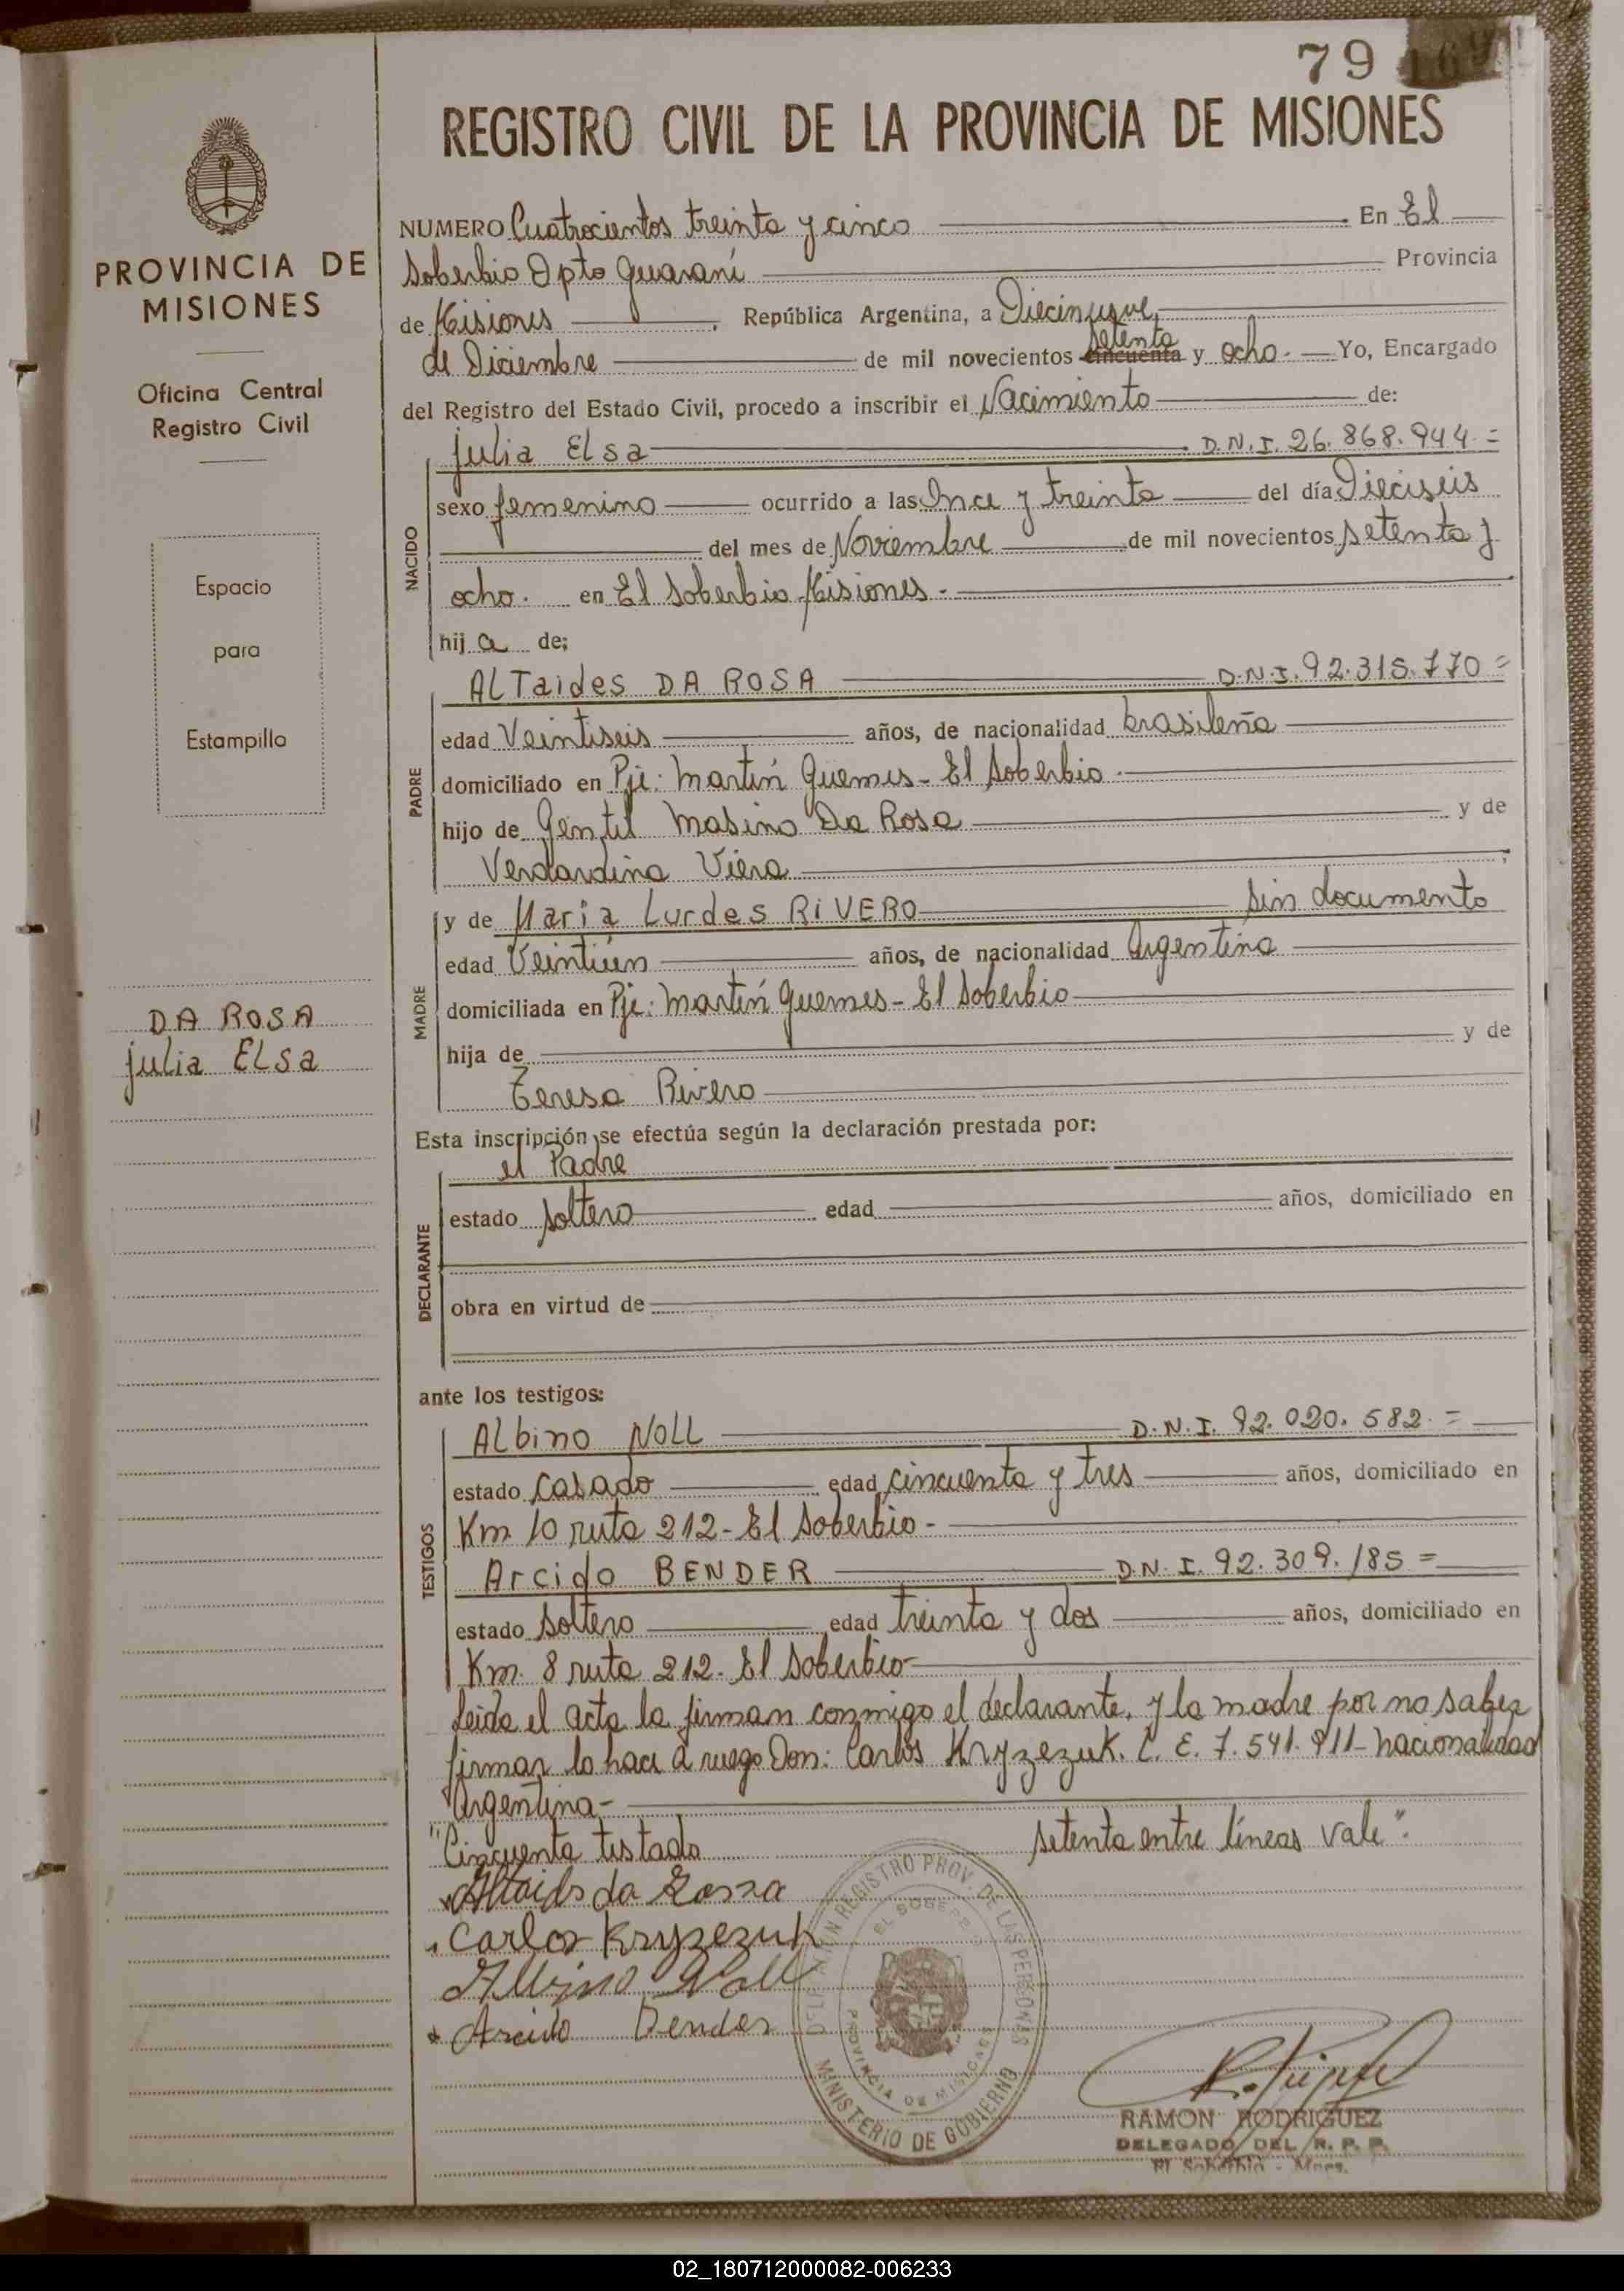 79 169
REGISTRO CIVIL DE LA PROVINCIA DE MISIONES
PROVINCIA DE
MISIONES
Oficina Central
Registro Civil
Espacio
para
Estampilla
DA ROSA
julia ELSA
NUMERO Cuatrocientos treinta y cinco En El
Soberbio Dpto Guaraní Provincia
de Misiones, República Argentina, a Diecinueve
setenta
de Diciembre de mil novecientos cincuenta y ocho.- Yo, Encargado
del Registro del Estado Civil, procedo a inscribir el Nacimiento de:
julia ELSA D.N.I. 26.868.944.=
NACIDO
sexo femenino ocurrido a las Once y treinta del día Dieciseis
del mes de Noviembre de mil novecientos setenta y
ocho. en El Soberbio Misiones.-
hija de;
ALTaides DA ROSA D.N.I. 92.315.770=
PADRE
edad Veintiseis años, de nacionalidad brasileña
domiciliado en Pje: Martín Guemes - El Soberbio.-
hijo de Gentil Masino Da Rosa y de
Verdardina Viera
y de Maria Lurdes RIVERO Sin documento
MADRE
edad Veintiún años, de nacionalidad Argentina
domiciliada en Pje: Martín Guemes - El Soberbio
hija de y de
Teresa Rivero
Esta inscripción se efectúa según la declaración prestada por:
el Padre
DECLARANTE
estado soltero edad años, domiciliado en
obra en virtud de
ante los testigos:
ALbino NOLL D.N.I. 92.020.582.=
TESTIGOS
estado Casado edad cincuenta y tres años, domiciliado en
Km. 10 ruta 212 - El Soberbio -
Arcido BENDER D.N.I. 92.309.185=
estado soltero edad treinta y dos años, domiciliado en
Km. 8 ruta 212. El Soberbio-
leida el acta la firman conmigo el declarante, y la madre por no saber
firmar lo hace a ruego Don: Carlos Kryzezuk. C. E. 7.541.911- nacionalidad
Argentina-
"Cincuenta testado setenta entre líneas vale".
Altaids da Rossa
Carlos Kryzezuk
Albino Noll
Arcido Bender
DELEGACION REGISTRO PROV. DE LAS PERSONAS
EL SOBERBIO
PROVINCIA DE MISIONES
MINISTERIO DE GOBIERNO
RAMON RODRIGUEZ
DELEGADO DEL R. P. P.
El Soberbio - Mnes.
02_180712000082-006233